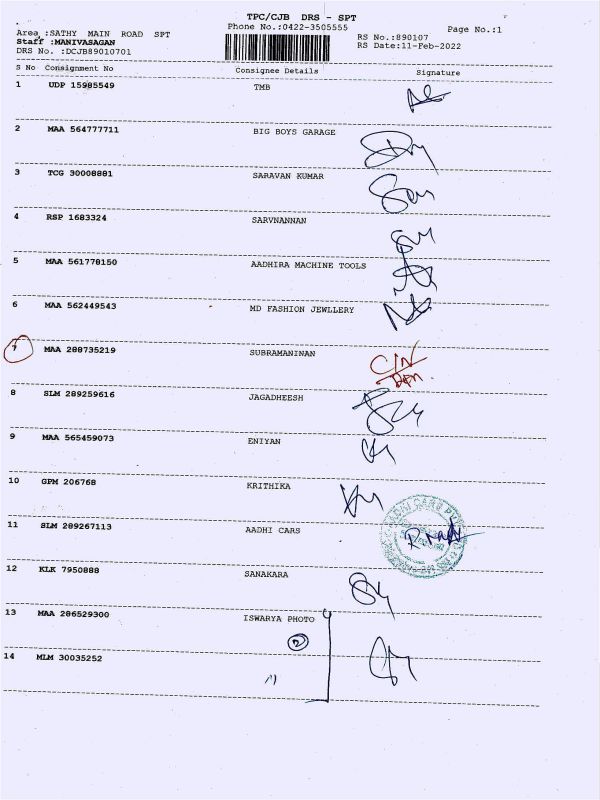 TPC/CJB DRS - SPT
Phone No.:0422-3505555
Page No.:1
Area :SATHY MAIN ROAD SPT
Staff :MANIVASAGAN
DRS No. :DCJB89010701
RS No.:890107
RS Date:11-Feb-2022
S No Consignment No Consignee Details Signature
1 UDP 15985549 TMB
2 MAA 564777711 BIG BOYS GARAGE
3 TCG 30008881 SARAVAN KUMAR
4 RSP 1683324 SARVNANNAN
5 MAA 561778150 AADHIRA MACHINE TOOLS
6 MAA 562449543 MD FASHION JEWLLERY
7 MAA 288735219 SUBRAMANINAN
8 SLM 289259616 JAGADHEESH
9 MAA 565459073 ENIYAN
10 GPM 206768 KRITHIKA
11 SLM 289267113 AADHI CARS
12 KLK 7950888 SANAKARA
13 MAA 286529300 ISWARYA PHOTO
14 MLM 30035252 "